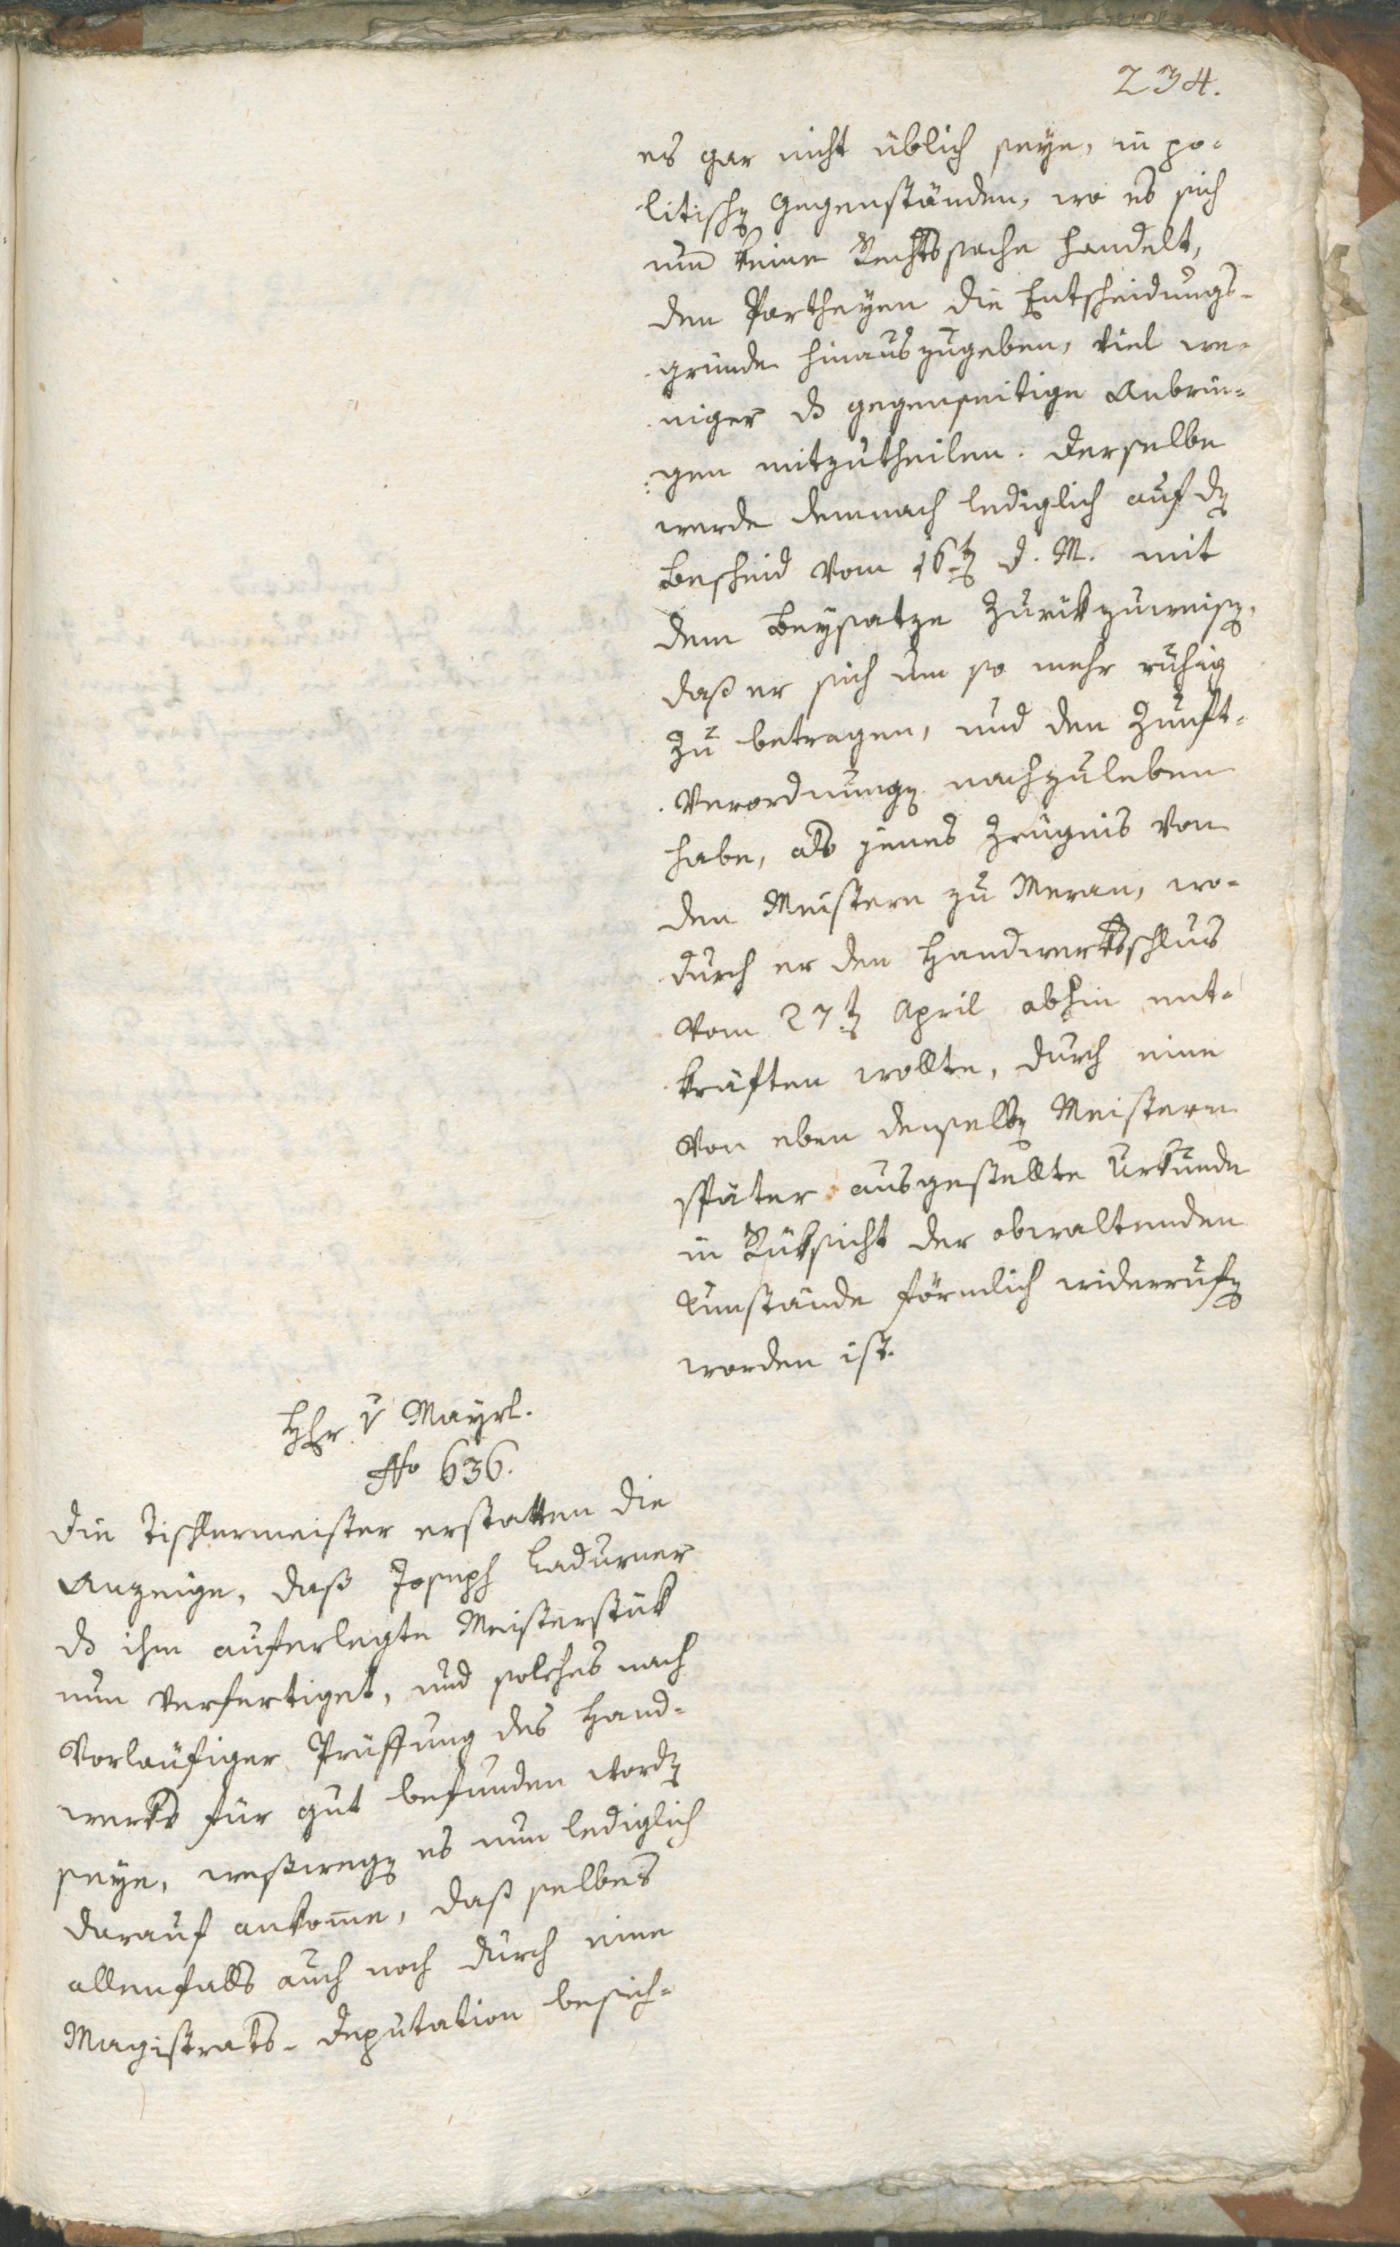 234.
es gar nicht üblich seye, in po-
litischen Gegenständen, wo es sich
um keine Rechtssache handelt,
den Partheyen die Entscheidungs-
gründe hinauszugeben, viel we-
niger ds gegenseitige Anbrin-
gen mitzutheilen. Derselbe
werde demnach lediglich auf den
Bescheid vom 16ten d. M. mit
dem Beysatze zurükzuweisen,
daß er sich um so mehr ruhig
zu betragen, und den Zunft-
Verordnungen nachzuleben
habe, als jenes Zeugnis von
den Meistern zu Meran, wo-
durch er den Handwerksschlus
vom 27ten April abhin ent-
kräften wollte, durch eine
von eben denselben Meistern
später ausgestellte Urkunde
in Rüksicht der obwaltenden
Umstände förmlich widerrufen
worden ist.
Hhr. v Mayrl.
No 636.
Die Tischlermeister erstatten die
Anzeige, daß Joseph Ladurner
ds ihm auferlegte Meisterstük
nun verfertiget, und solches nach
vorläufiger Prüffung des Hand-
werks für gut befunden worden
seye, weßwegen es nun lediglich
darauf ankome, daß selbes
allenfalls auch noch durch eine
Magistrats-Deputation besich-